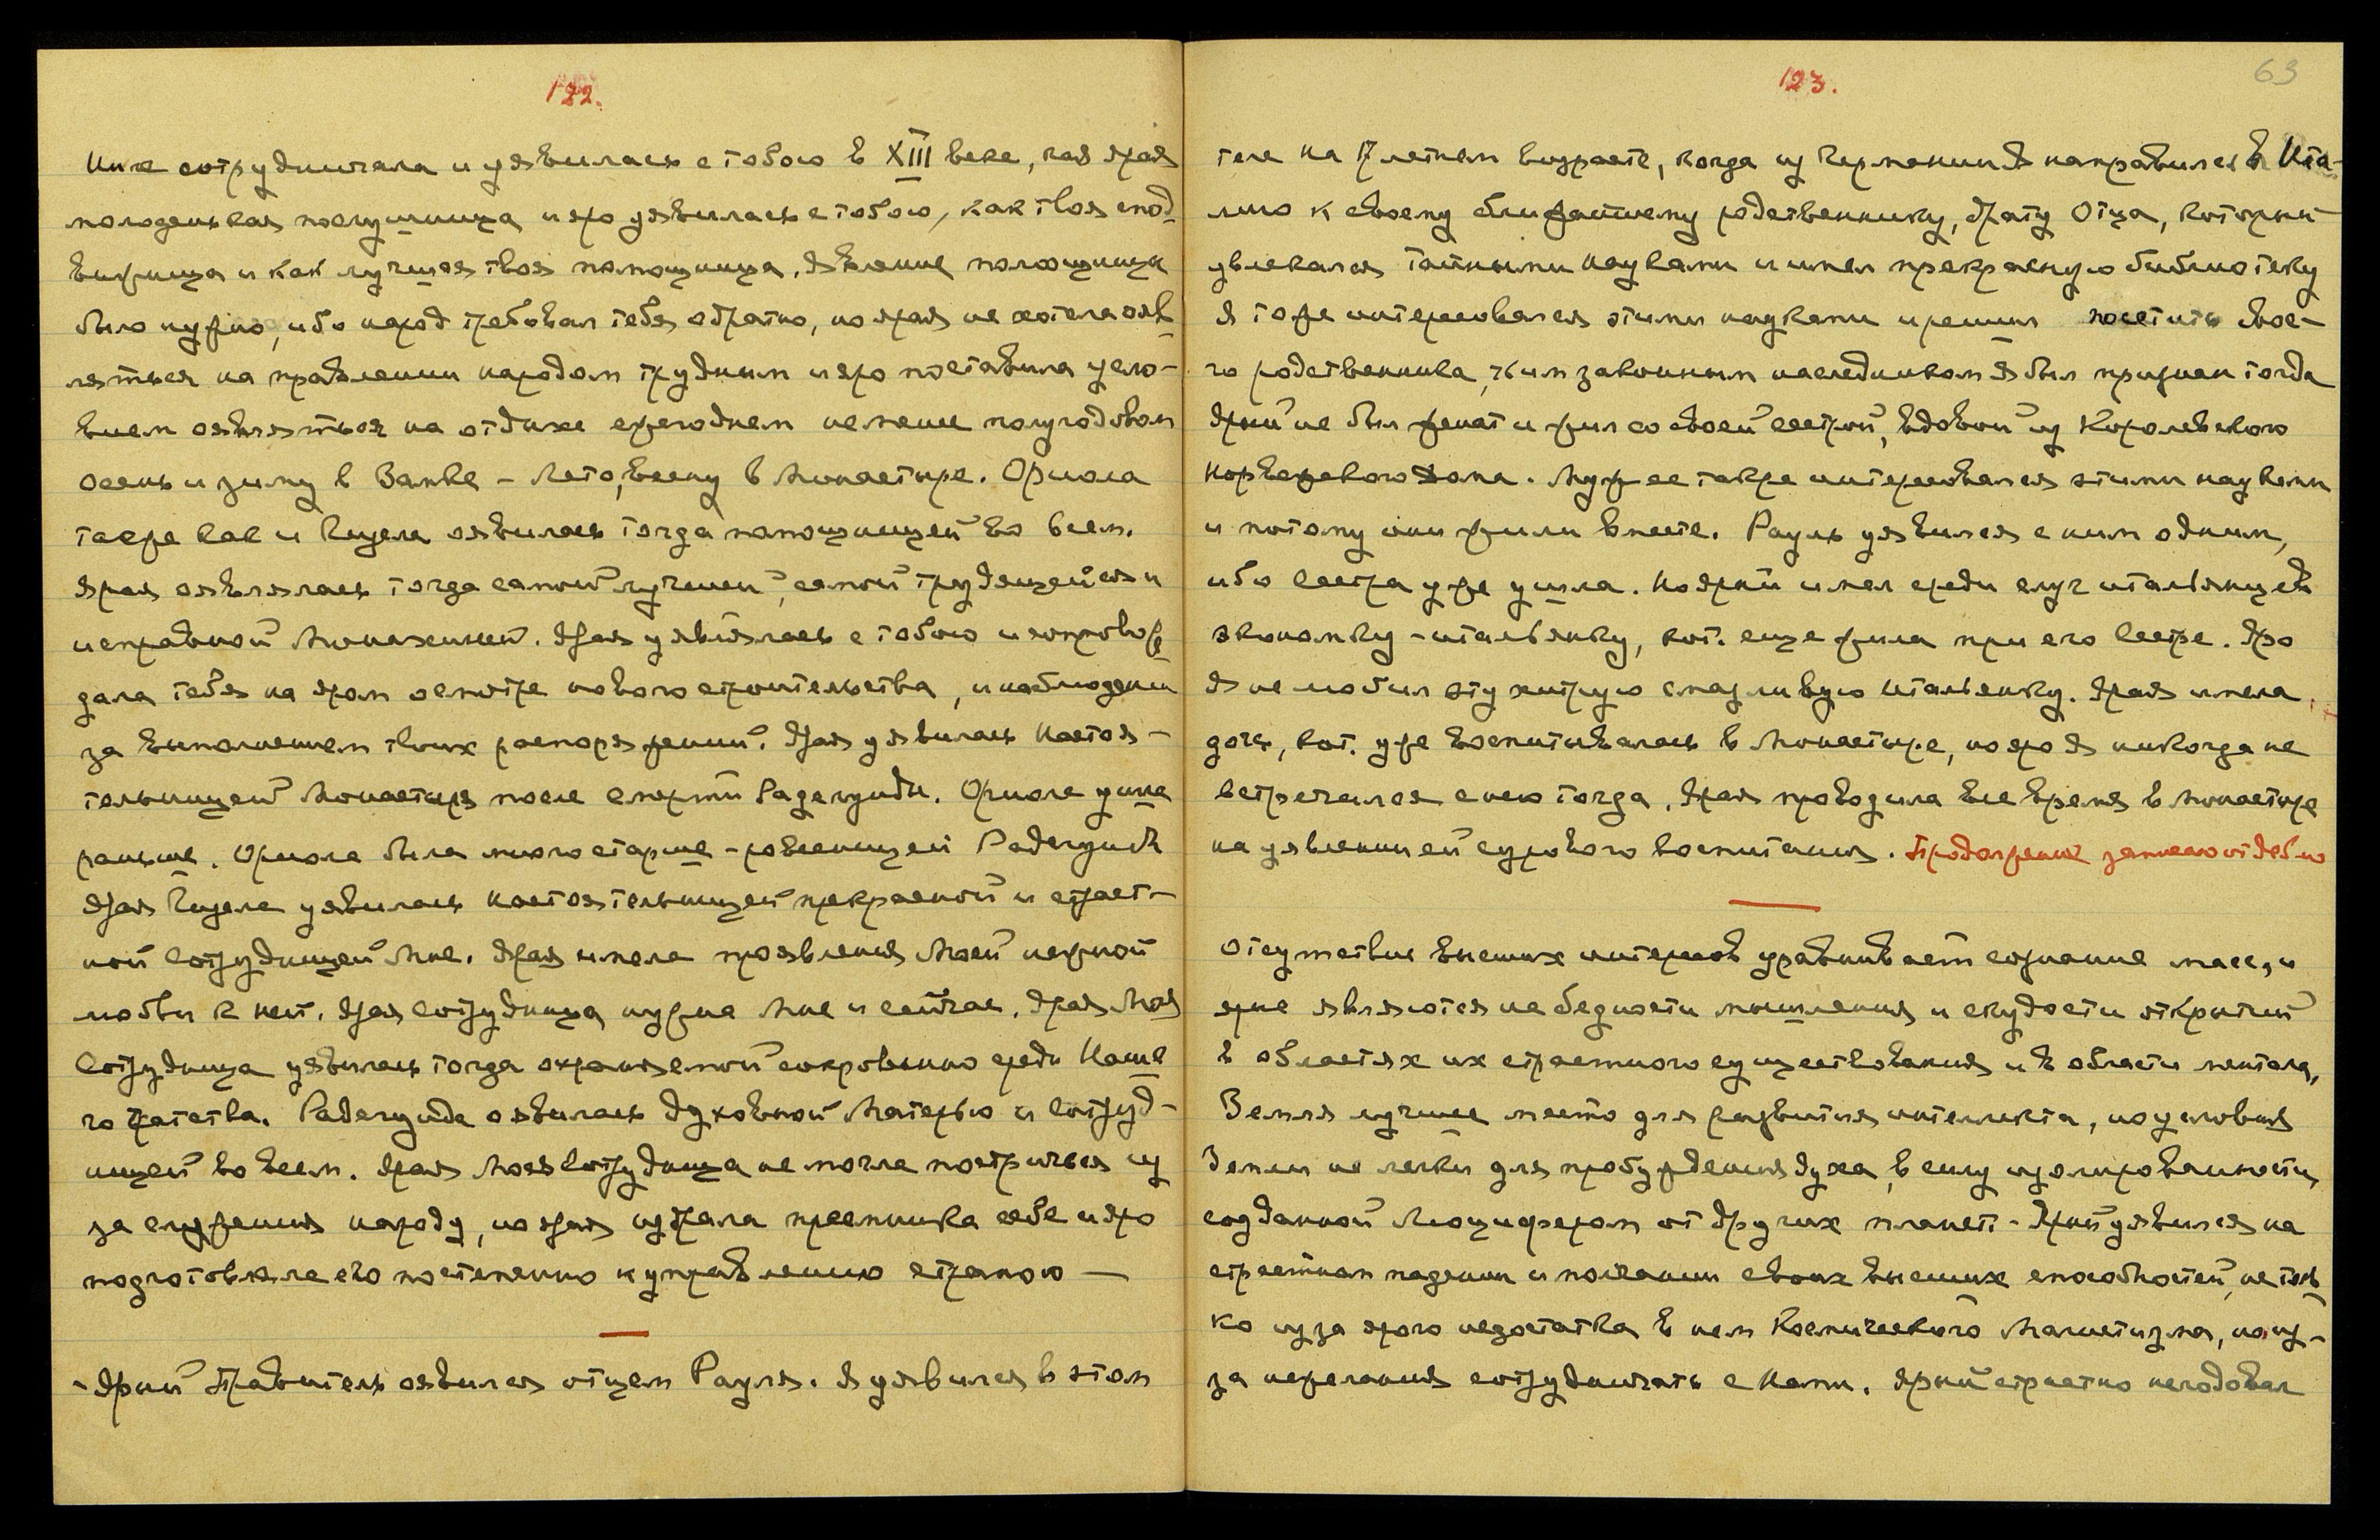 122.
Ник сотрудничала и уявилась с тобою в XIII веке, как ярая
молоденькая послушница и яро уявилась с тобою, как твоя спод-
вижница и как лучшая твоя помощница. Явление помощницы
было нужно, ибо народ требовал тебя обратно, но ярая не хотела ояв-
ляться на правлении народом трудным и яро поставила усло-
вием оявляться на отдыхе ежегоднем не менее полугодовом
осень и зиму в Замке – Лето, весну в Монастыре. Ориола
также как и Гизела оявилась тогда помощницей во всем.
Ярая оявлялась тогда самой лучшей, самой трудящейся и
исправной Монахиней. Ярая уявлялась с тобою и сопровож-
дала тебя на яром осмотре нового строительства, и наблюдении
за выполнением твоих распоряжений. Ярая уявилась Настоя-
тельницей Монастыря после смерти Радегунды. Ориола ушла
раньше. Ориола была много старше – ровесницей Радегунды
Ярая Гизела уявилась настоятельницей прекрасной и страст-
ной сотрудницей Мне. Ярая имела проявления Моей нежной
любви к ней. Ярая сотрудница нужна Мне и сейчас. Ярая Моя
Сотрудница уявилась тогда охраняемой сокровенно среди Наше
го Братства. Радегунда оявилась духовной Матерью и сотруд-
ницей во всем. Ярая Моя Сотрудница не могла постричься из
за служения народу, но ярая избрала преемника себе и яро
подготовляла его постепенно к управлению страною —
- Ярый Правитель оявился отцом Рауля. Я уявился в этом
123.
63
теле на 17 летнем возрасте, когда из Германии Я направился в Ита-
лию к своему ближайшему родственнику, брату Отца, который
увлекался тайными науками и имел прекрасную библиотеку
Я тоже интересовался этими науками и решил посетить свое-
го родственника, чьим законным наследником Я был признан тогда
Ярый не был женат и жил со своей сестрой, вдовой из Королевского
Норвежского Дома. Муж ее также интересовался этими науками
и потому они жили вместе. Рауль уявился с ним одним,
ибо Сестра уже ушла. Но ярый имел среди слуг итальянцев
экономку – итальянку, кот. еще жила при его Сестре. Яро
Я не любил эту хитрую смазливую Итальянку. Ярая имела
дочь, кот. уже воспитывалась в Монастыре, но яро Я никогда не
встречался с нею тогда. Ярая проводила все время в Монастыре
на уявлении ей сурового воспитания. Продолжение записано отдельно
Отсутствие высших интересов уравнивает сознание масс, и
ярые являются на бедности мышления и скудости открытий
в областях их страстного существования и в области ментала,
Земля лучшее место для развития интеллекта, но условия
Земли не легки для пробуждения духа, в силу изолированности,
созданной Люцифером от других планет. – Ярый уявился на
страстном падении и попрании своих высших способностей, не толь
ко из за ярого недостатка в нем Космического Магнетизма, но из-
за нежелания сотрудничать с Нами. Ярый страстно негодовал